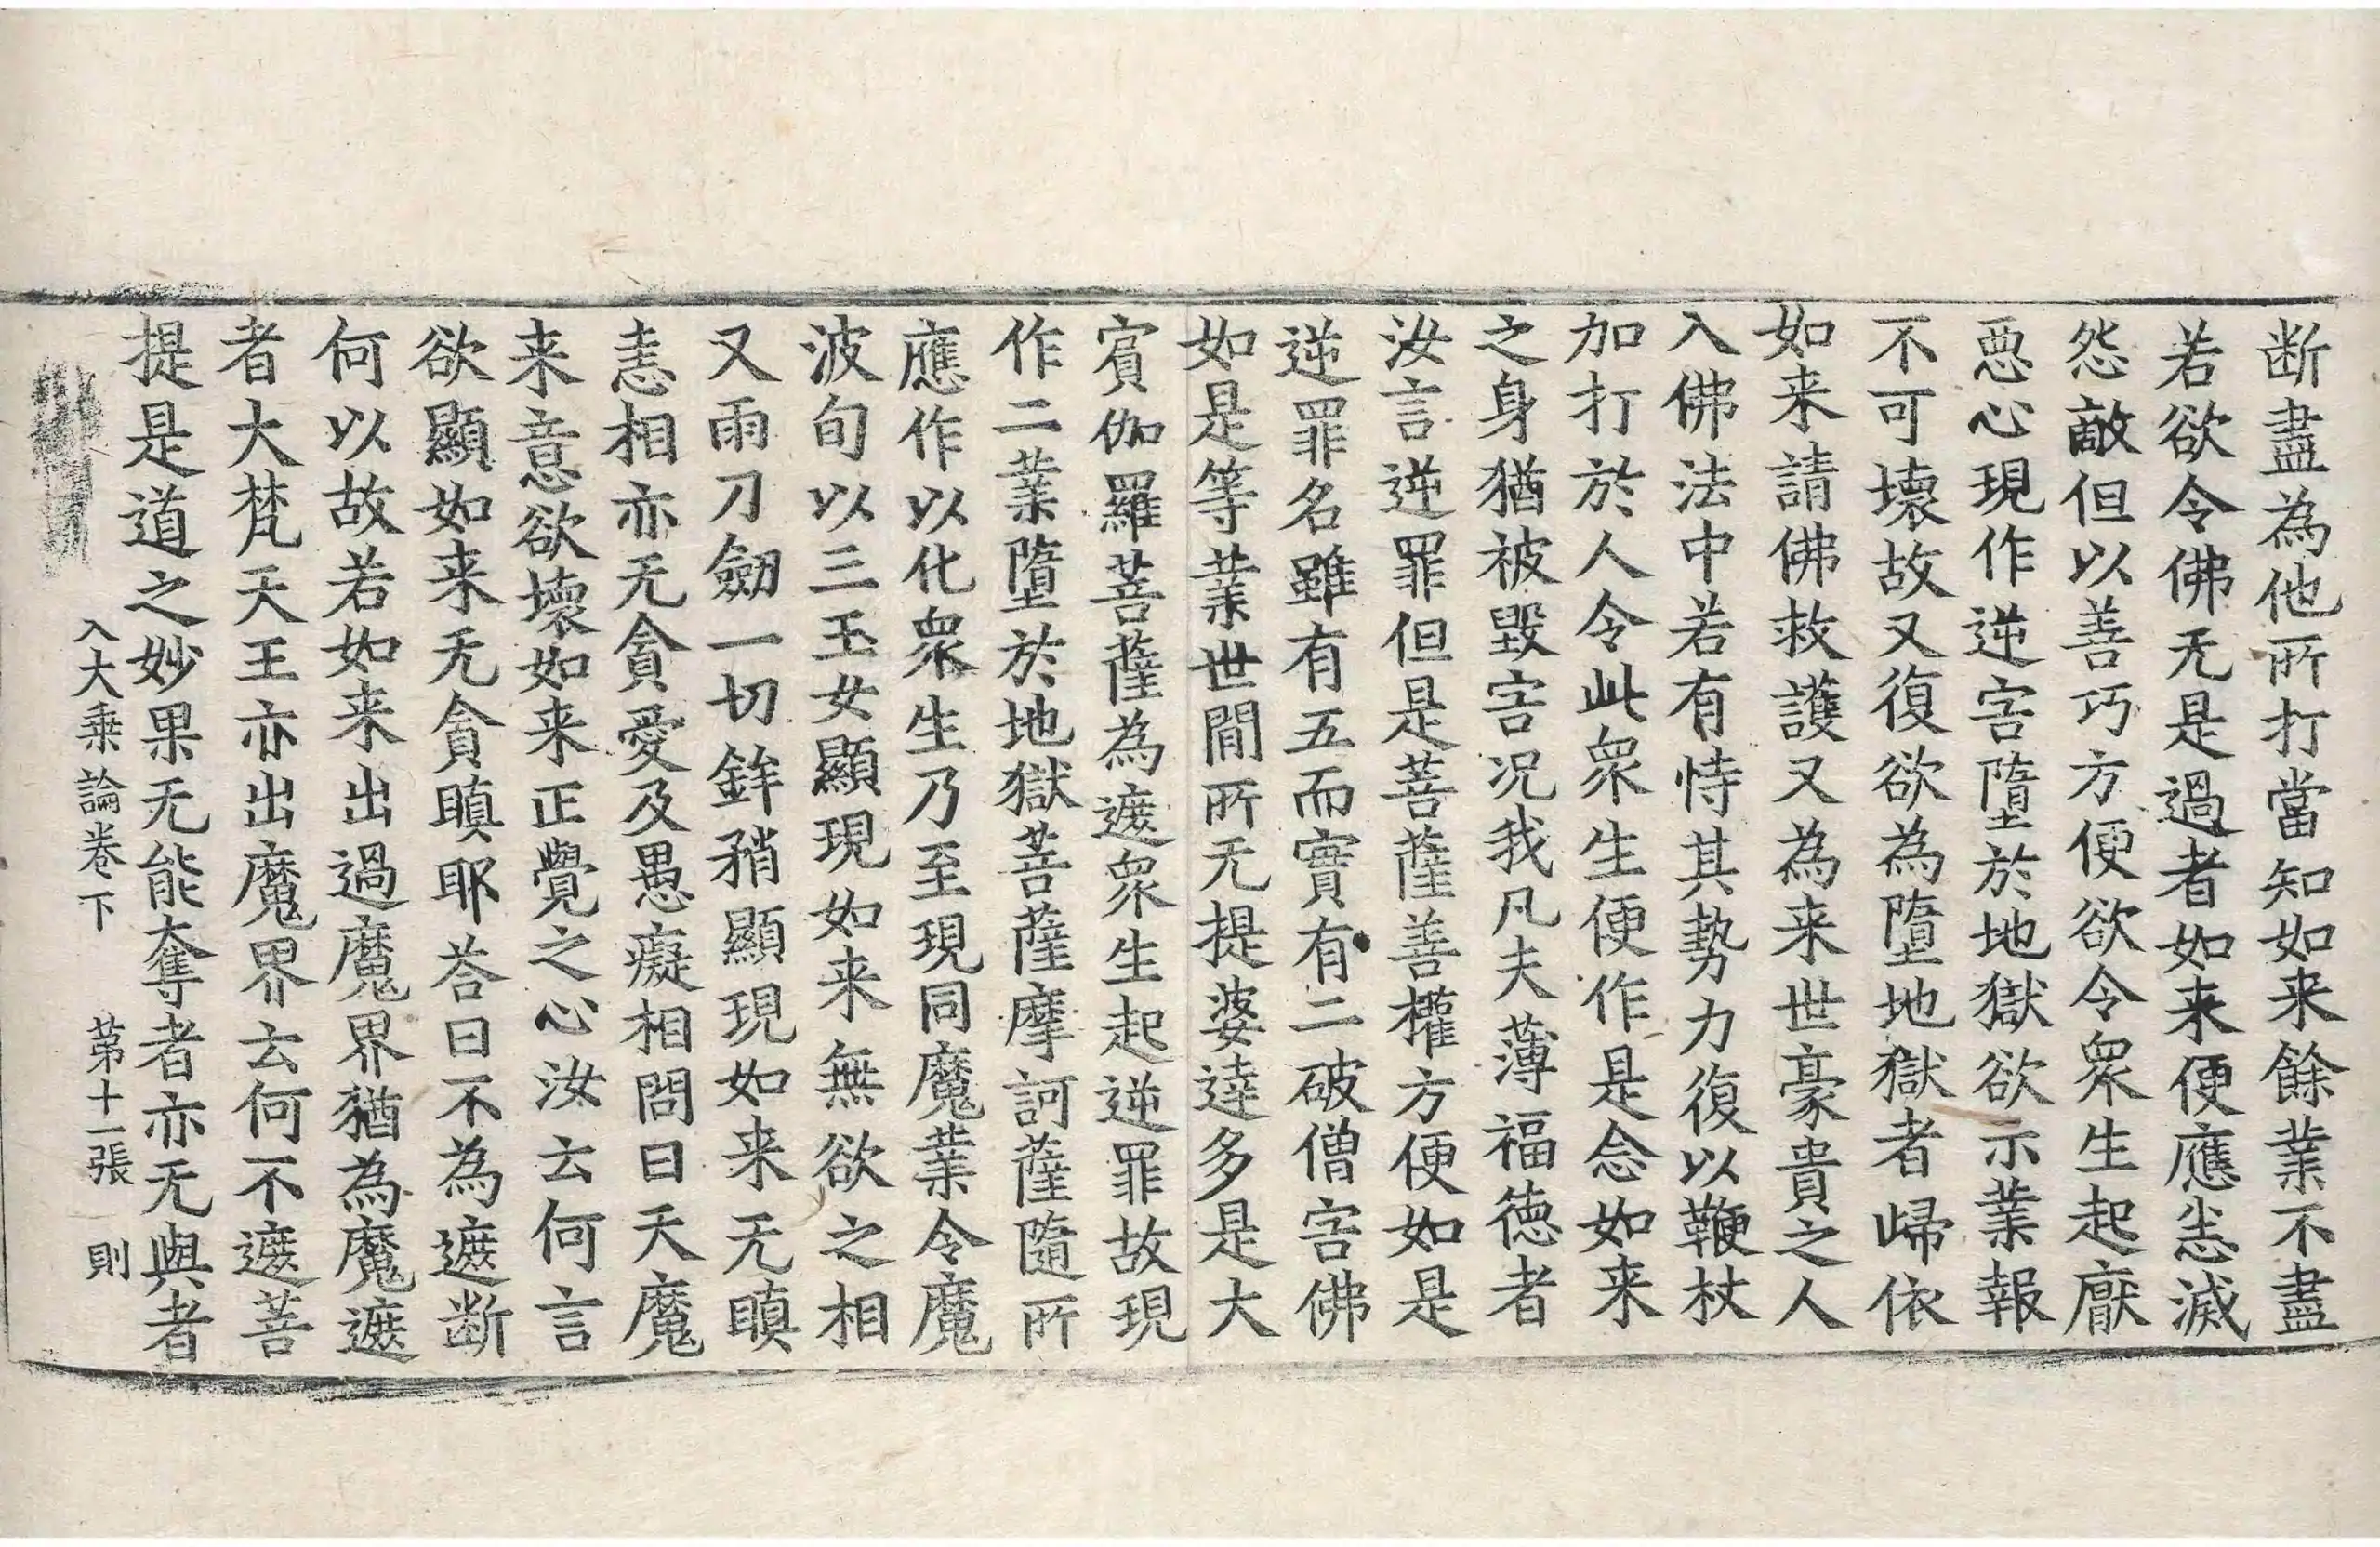 断盡為他所打當知如来餘業不盡
若欲令佛无是過者如来便應恙滅
怨敵但以善巧方便欲令衆生起厭
惡心現作逆害墮於地獄欲示業報
不可壊故又復欲為墮地獄者歸依
如来請佛救護又為来世豪貴之人
入佛法中若有恃其勢力復以鞭杖
加打於人令此衆生便作是念如来
之身猶被毀害况我凡夫薄福德者
汝言逆罪但是菩薩善權方便如是
逆罪名雖有五而實有二破僧害佛
如是等業世間所无提婆達多是大
賔伽羅菩薩為遮衆生起逆罪故現
作二業墮於地獄菩薩摩訶薩隨所
應作以化衆生乃至現同魔業令魔
波旬以三玉女顯現如来無欲之相
又雨刀劒一切鉾矟顯現如来无瞋
恚相亦无貪愛及愚癡相問曰天魔
来意欲壞如来正覺之心汝云何言
欲顯如来无貪瞋耶荅曰不為遮断
何以故若如来出過魔界猶為魔遮
者大梵天王亦出魔界云何不遮菩
提是道之妙果无能奪者亦无與者
入大乗論卷下 苐十一張 則